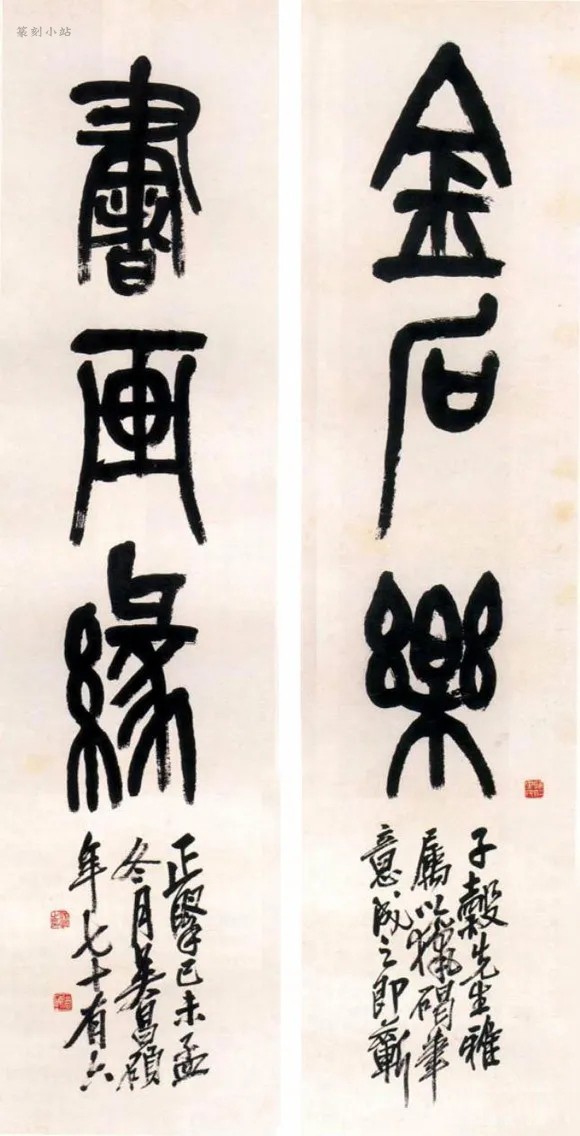 篆刻小站
金石樂
書画緣
子穀先生雅
屬以獵碣筆
意成之即蘄
正擘己未孟
冬月吴昌碩
年七十有六